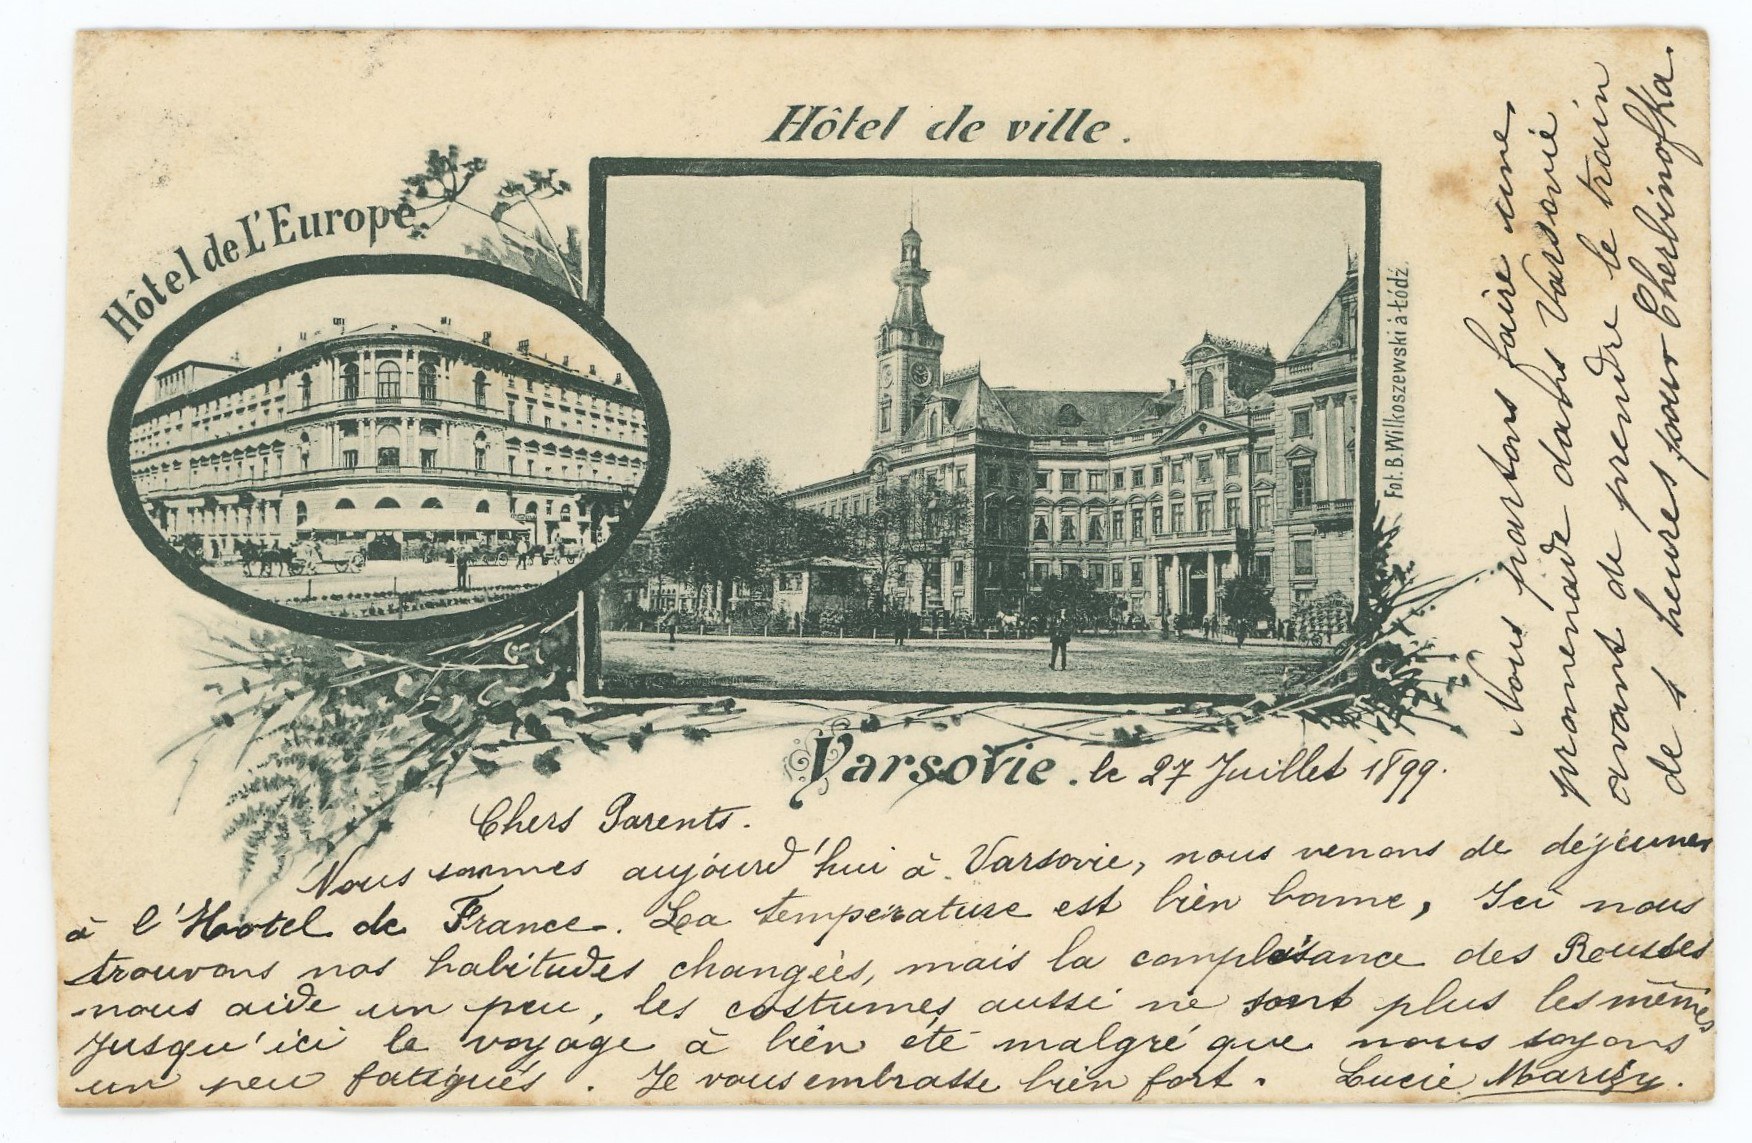 Hôtel de ville.
Hôtel de L'Europe
Fot. B. Wilkoszewski à Łódź.
Varsovie. le 27 Juillet 1899.
Chers Parents.
Nous sommes aujourd'hui à Varsovie, nous venons de déjeuner
à l'Hotel de France. La température est bien bonne, Ici nous
trouvons nos habitudes changées, mais la complaisance des Rousses
nous aide un peu, les costumes aussi ne sont plus les mêmes
Jusqu'ici le voyage à bien été malgré que nous soyons
un peu fatigués. Je vous embrasse bien fort. Lucie
Nous partons faire une
promenade dans Varsovie
avant de prendre le train
de 4 heures pour Cherbinofka.